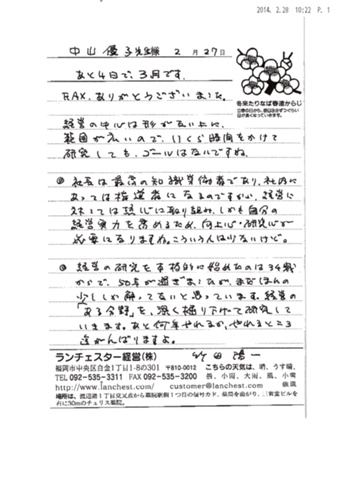 2014. 2.28 10:22 P. 1
中山優子先生様 2月27日
あと4日で、3月です。
FAX、ありがとうございました。
冬来たりなば春遠からじ
経営の中心は形がない上に、
範囲が広いので、いくら時間をかけて
研究しても、ゴールはないですね。
社長は最高の知識労働者であり、社内に
あっては指導者になるのですから、経営に
対しては熱心に取り組み、しかも自分の
経営実力を高めるため、向上心・研究心が
必要になりますね。こういう人は少ないけど。
経営の研究を本格的に始めたのは34歳
からで、50年が過ぎましたが、まだほんの
少ししか解ってないと思っています。経営の
「ある分野」を、深く掘り下げて研究して
いきます。あと何年やれるか、やれるところ
迄がんばりますよ。
ランチェスター経営(株) 竹田陽一
福岡市中央区白金1丁目1-8の301 〒810-0012 こちらの天気は、晴、うす晴、
TEL 092-535-3311 FAX 092-535-3200 曇、小雨、大雨、風、小雪
http://www.lanchest.com/ customer@lanchest.com
場所は、渡辺通1丁目交差点から薬院駅側1つ目の信号カド、薬局を曲がり、
右に50mのチュリス薬院。